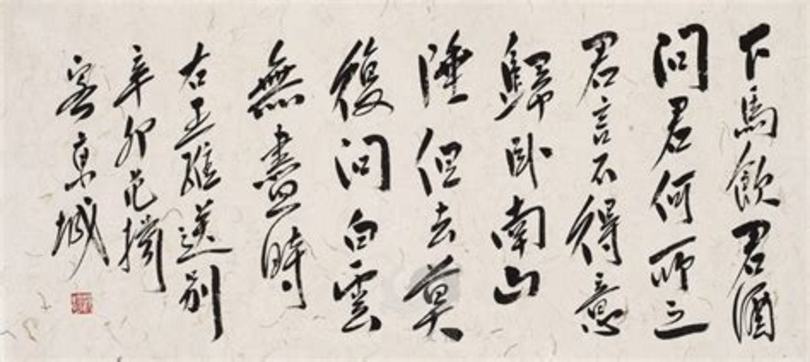 下馬飲君酒
問君何所之
君言不得意
歸卧南山
陲但去莫
復問白雲
無盡時
右王維送别
辛卯范
京城